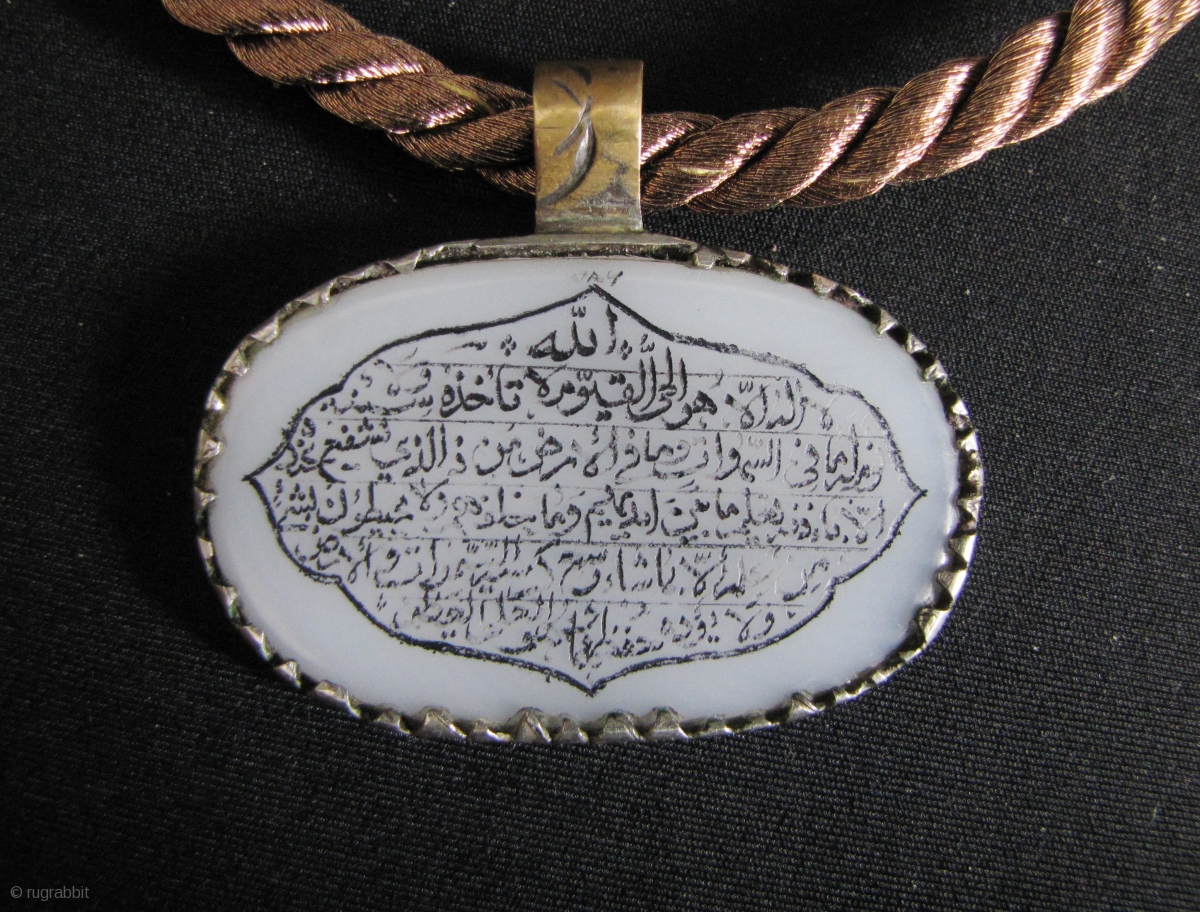 ٧٨٦
الله
لا اله الا هو الحی القیوم لا تأخذه سنة ولا
نوم له ما فی السموات وما فی الارض من ذ الذی یشفع عنده
الا باذنه یعلم ما بین ایدیهم وما خلفهم ولا یحیطون بشئ
من علمه الا بما شاء وسع کرسیه السموات والارض
ولا یؤده حفظهما وهو العلی العظیم
© rugrabbit